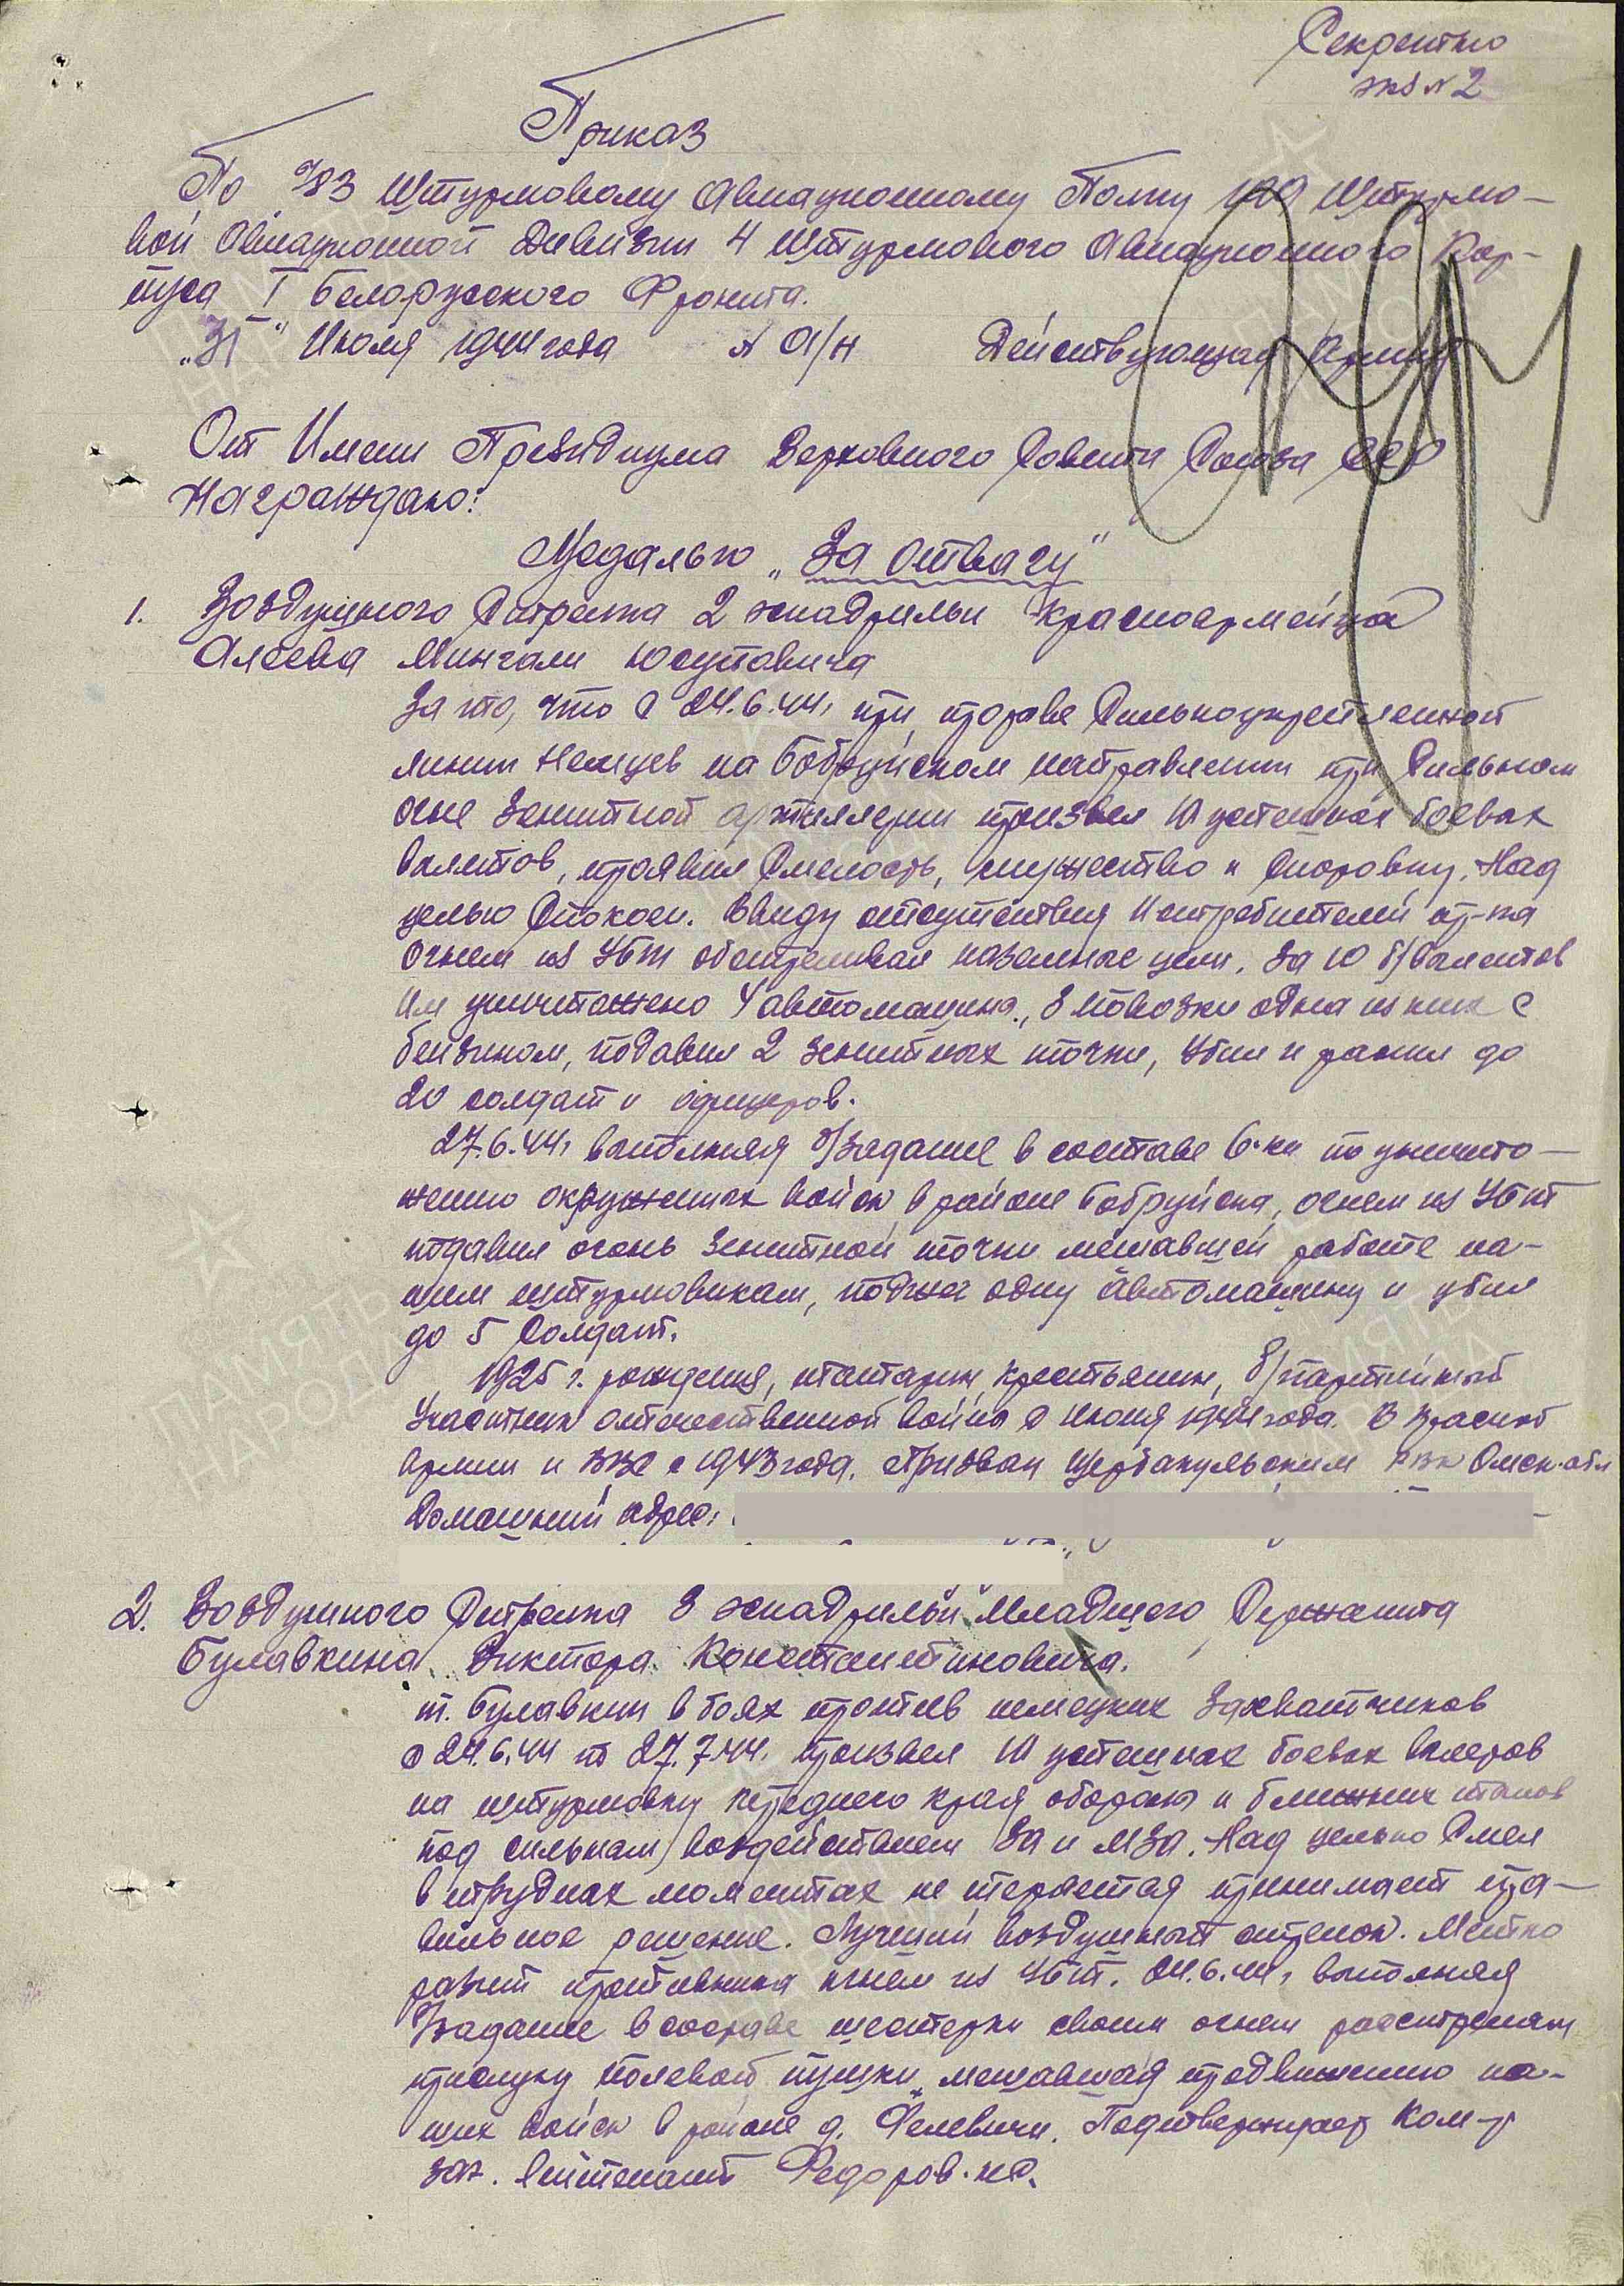 Секретно
экз № 2
Приказ
По 783 Штурмовому Авиационному Полку 199 Штурмо-
вой Авиационной Дивизии 4 Штурмового Авиационного Кор-
пуса I Белорусского Фронта.
"31" Июля 1944 года № 01/н Действующая Армия
От Имени Президиума Верховного Совета Союза ССР
Награждаю:
Медалью "За отвагу"
1. Воздушного Стрелка 2 эскадрильи Красноармейца
Алеева Мингали Юсуповича
За то, что с 24.6.44г при прорыве Сильноукрепленной
линии Немцев на Бобруйском направлении при Сильном
огне Зенитной артиллерии произвел 10 успешных боевых
вылетов, проявил Смелость, мужество и Сноровку. Над
целью Спокоен. Ввиду отсутствия Истребителей пр-ка
Огнем из УБТ обстреливал наземные цели. За 10 б/вылетов
Им уничтожено 4 автомашины, 3 повозки одна из них с
бензином, подавил 2 зенитных точки, убил и ранил до
20 солдат и офицеров.
27.6.44г выполняя б/задание в составе 6-ки по уничто-
жению окруженных войск в районе Бобруйска, огнем из УБТ
подавил огонь Зенитной точки мешавшей работе на-
шим штурмовикам, поджег одну автомашину и убил
до 5 Солдат.
1925 г. рождения, татарин, крестьянин, б/партийный
Участник отечественной войны с июня 1944 года. В Красной
Армии и ВВС с 1943 года. Призван Щербакульским РВК Омск. обл
Домашний адрес:
2. Воздушного Стрелка 3 эскадрильи Младшего Сержанта
Булавкина Виктора Константиновича.
т. Булавкин в боях против немецких Захватчиков
с 24.6.44 по 27.7.44г произвел 10 успешных боевых вылетов
на штурмовку переднего края обороны и ближних тылов
под сильным воздействием ЗА и МЗА. Над целью Смел
в трудных моментах не теряется принимает пра-
вильное решение. Лучший воздушный стрелок. Метко
разит противника огнем из УБТ. 24.6.44г выполняя
Задание в составе шестерки своим огнем расстрелял
прислугу полевой пушки мешавшая продвижению на-
ших войск в районе д. Фелевичи. Подтверждает Ком-р
зв. Лейтенант Федоров.